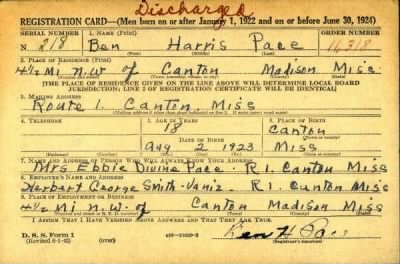 Discharged
REGISTRATION CARD—(Men born on or after January 1, 1922 and on or before June 30, 1924)
SERIAL NUMBER 1. NAME (Print) ORDER NUMBER
N 218 Ben Harris Pace
(First) (Middle) (Last)
2. PLACE OF RESIDENCE (Print)
4½ Mi N.W. of Canton Madison Miss
[THE PLACE OF RESIDENCE GIVEN ON THE LINE ABOVE WILL DETERMINE LOCAL BOARD
JURISDICTION; LINE 2 OF REGISTRATION CERTIFICATE WILL BE IDENTICAL]
3. MAILING ADDRESS
Route 1. Canton, Miss
4. TELEPHONE 5. AGE IN YEARS 6. PLACE OF BIRTH
18 Canton
DATE OF BIRTH
2 1923 Miss
7. NAME AND ADDRESS OF PERSON WHO WILL ALWAYS KNOW YOUR ADDRESS
Mrs Ebbie Divine Pace - R1. Canton Miss
8. EMPLOYER'S NAME AND ADDRESS
Herbert George Smith - R1. Canton Miss
9. PLACE OF EMPLOYMENT OR BUSINESS
4½ Mi N.W. of Canton Madison Miss
I AFFIRM THAT I HAVE VERIFIED ABOVE ANSWERS AND THAT THEY ARE TRUE.
D. S. S. Form 1
(Revised 6-9-42) (over)
Ben H Pace
(Registrant's signature)